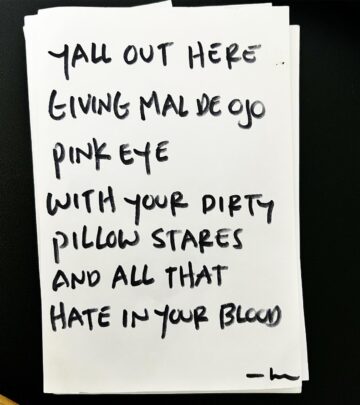 YALL OUT HERE
GIVING MAL DE OJO
PINK EYE
WITH YOUR DIRTY
PILLOW STARES
AND ALL THAT
HATE IN YOUR BLOOD